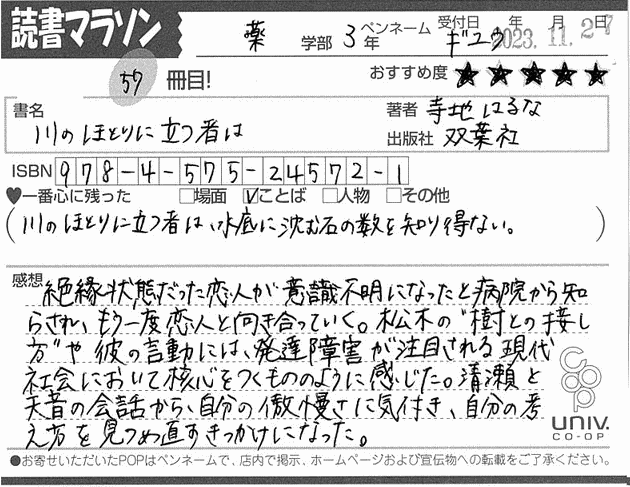 読書マラソン
薬 学部 3年 ペンネーム ギユウ 受付日 年 月 日
2023.11.27
57 冊目! おすすめ度 ★★★★★
書名 川のほとりに立つ者は
著者 寺地はるな
出版社 双葉社
ISBN 978-4-575-24572-1
♥一番心に残った □場面 ☑ことば □人物 □その他
(川のほとりに立つ者は、水底に沈む石の数を知り得ない。)
感想 絶縁状態だった恋人が意識不明になったと病院から知
らされ、もう一度恋人と向き合っていく。松木の"樹との接し
方"や彼の言動には、発達障害が注目される現代
社会において核心をつくもののように感じた。清瀬と
天音の会話から、自分の傲慢さに気付き、自分の考
え方を見つめ直すきっかけになった。
coop
UNIV.
CO-OP
●お寄せいただいたPOPはペンネームで、店内で掲示、ホームページおよび宣伝物への転載をご了承ください。